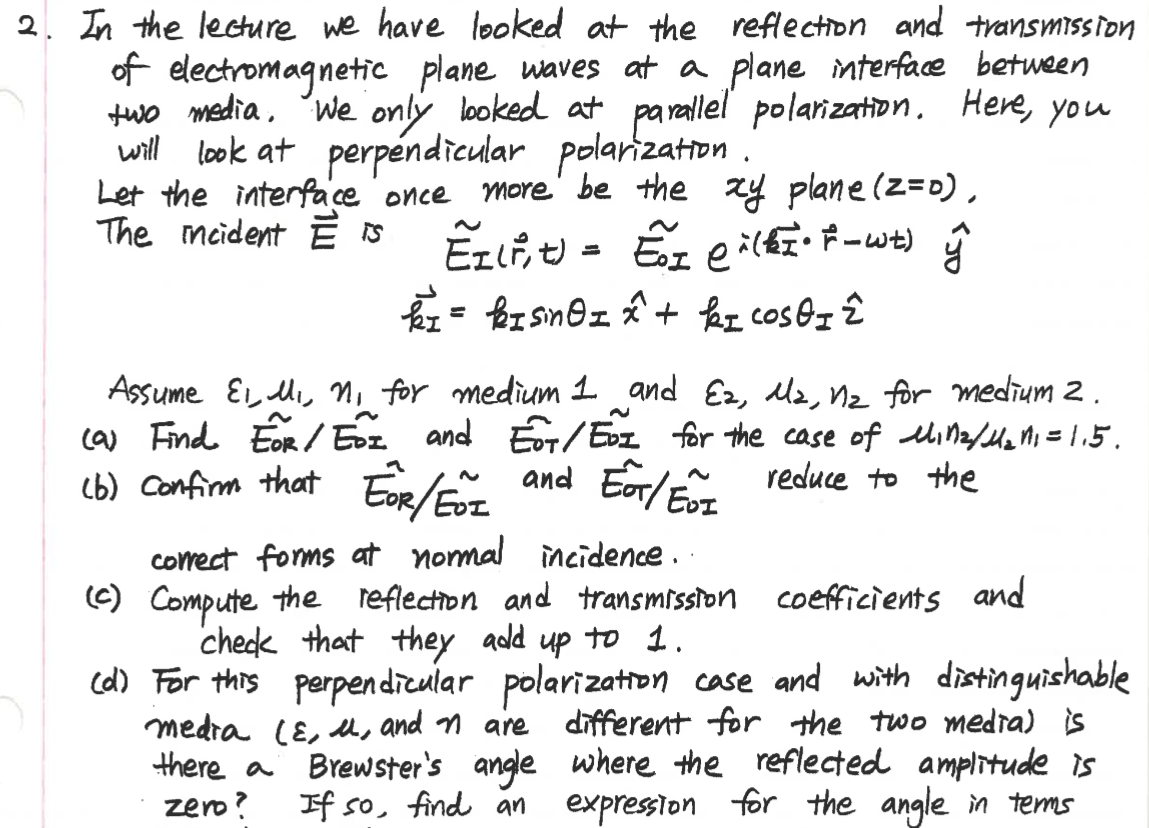 2. In the lecture we have looked at the reflection and transmission
of electromagnetic plane waves at a plane interface between
two media. We only looked at parallel polarization. Here, you
will look at perpendicular polarization.
Let the interface once more be the xy plane (z=0).
The incident E⃗ is Ẽ_I(r⃗,t) = Ẽ_OI e^{i(k⃗_I·r⃗-ωt)} ŷ
k⃗_I = k_I sinθ_I x̂ + k_I cosθ_I ẑ
Assume ε₁, μ₁, n₁ for medium 1 and ε₂, μ₂, n₂ for medium 2.
(a) Find Ẽ_OR/Ẽ_OI and Ẽ_OT/Ẽ_OI for the case of μ₁n₂/μ₂n₁ = 1.5.
(b) Confirm that Ẽ_OR/Ẽ_OI and Ẽ_OT/Ẽ_OI reduce to the
correct forms at normal incidence.
(c) Compute the reflection and transmission coefficients and
check that they add up to 1.
(d) For this perpendicular polarization case and with distinguishable
media (ε, μ, and n are different for the two media) is
there a Brewster's angle where the reflected amplitude is
zero? If so, find an expression for the angle in terms